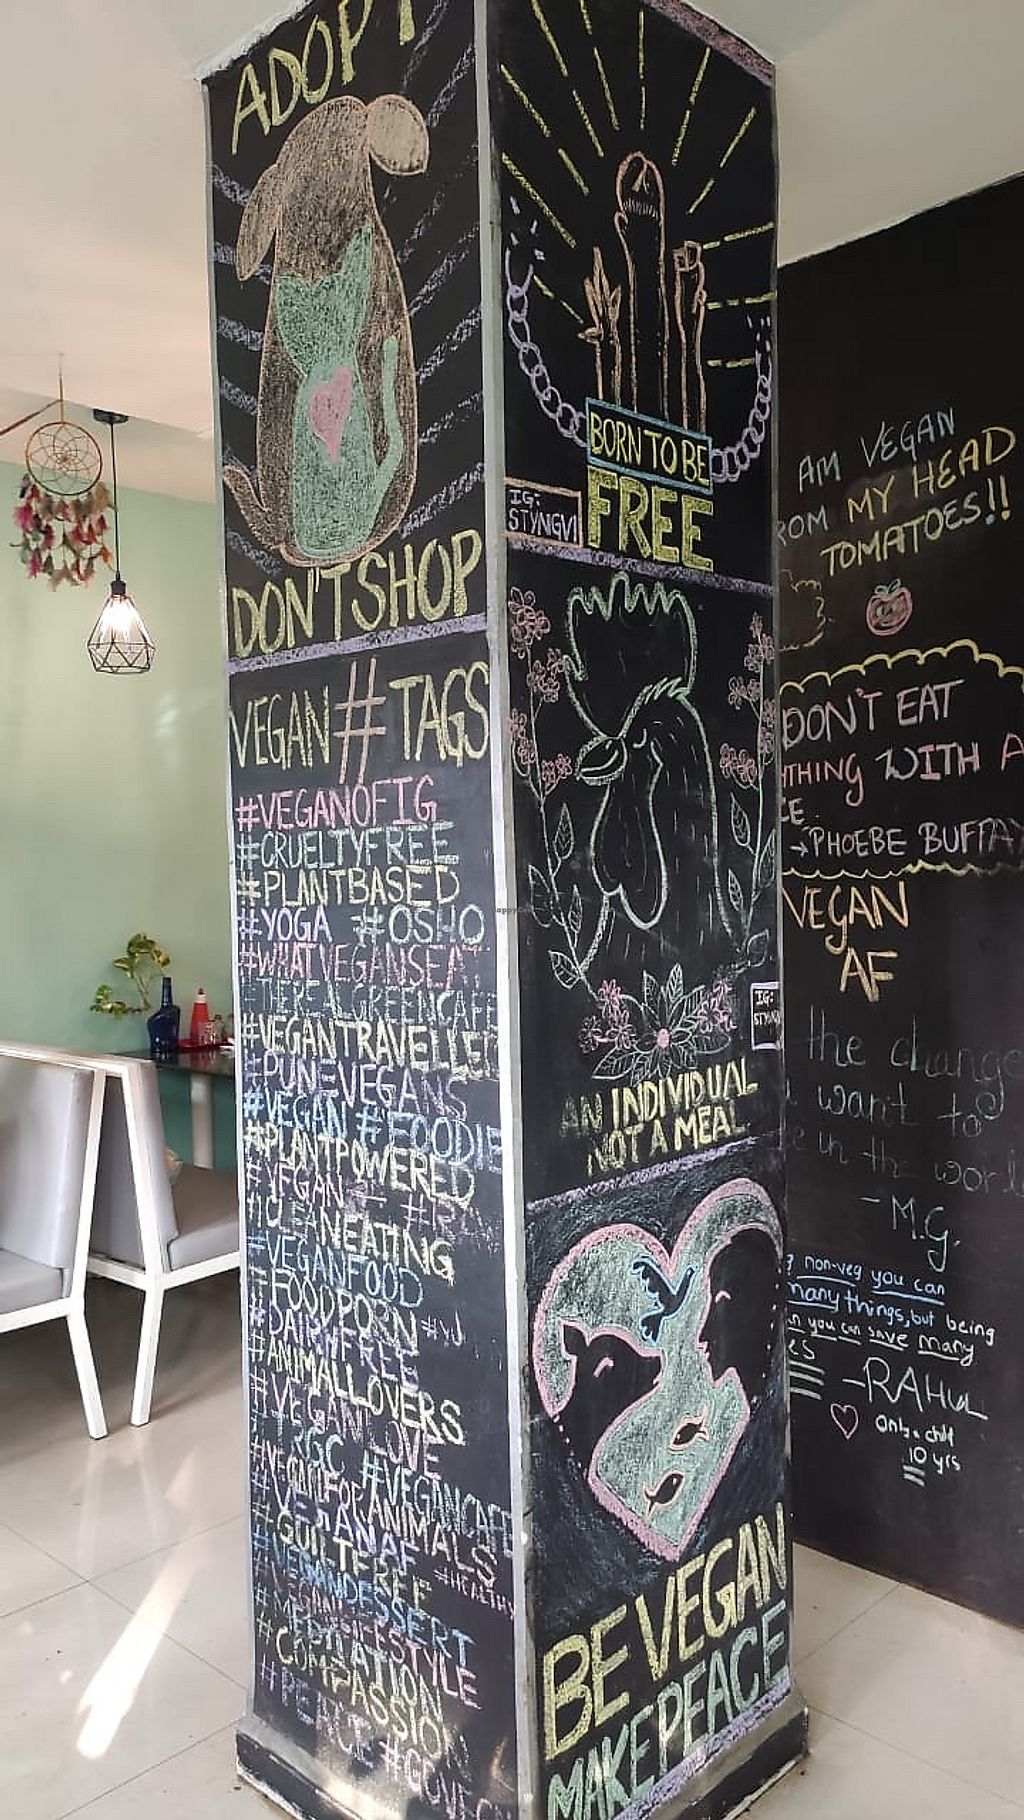 ADOPT
DON'T SHOP
VEGAN # TAGS
#VEGANOFIG
#CRUELTYFREE
#PLANTBASED
#YOGA #OSHO
#WHATVEGANSEAT
#THEREALGREENCAFE
#VEGANTRAVELLE
#PUNEVEGANS
#VEGAN #FOODIE
#PLANTPOWERED
#VEGAN
#CLEANEATING
#VEGANFOOD
#FOODPORN
#DAIRYFREE
#ANIMALLOVERS
#VEGANLOVE
#TRGC #VEGANCAFE
#VEGANFORANIMALS
#VEGANAF
#HEALTHY
#GUILTFREE
#VEGANDESSERT
#VEGANLIFESTYLE
#MEDITATION
#COMPASSION
#PEACE
BORN TO BE
FREE
IG:
STYNGVI
IG:
AN INDIVIDUAL
NOT A MEAL
BE VEGAN
MAKE PEACE
AM VEGAN
ROM MY HEAD
TOMATOES!!
DON'T EAT
THING WITH A
CE
→PHOEBE BUFFAY
VEGAN
AF
the change
want to
in the world
-M.G.
non-veg you can
many things, but being
n you can save many
-RAHUL
only a child
10 yrs